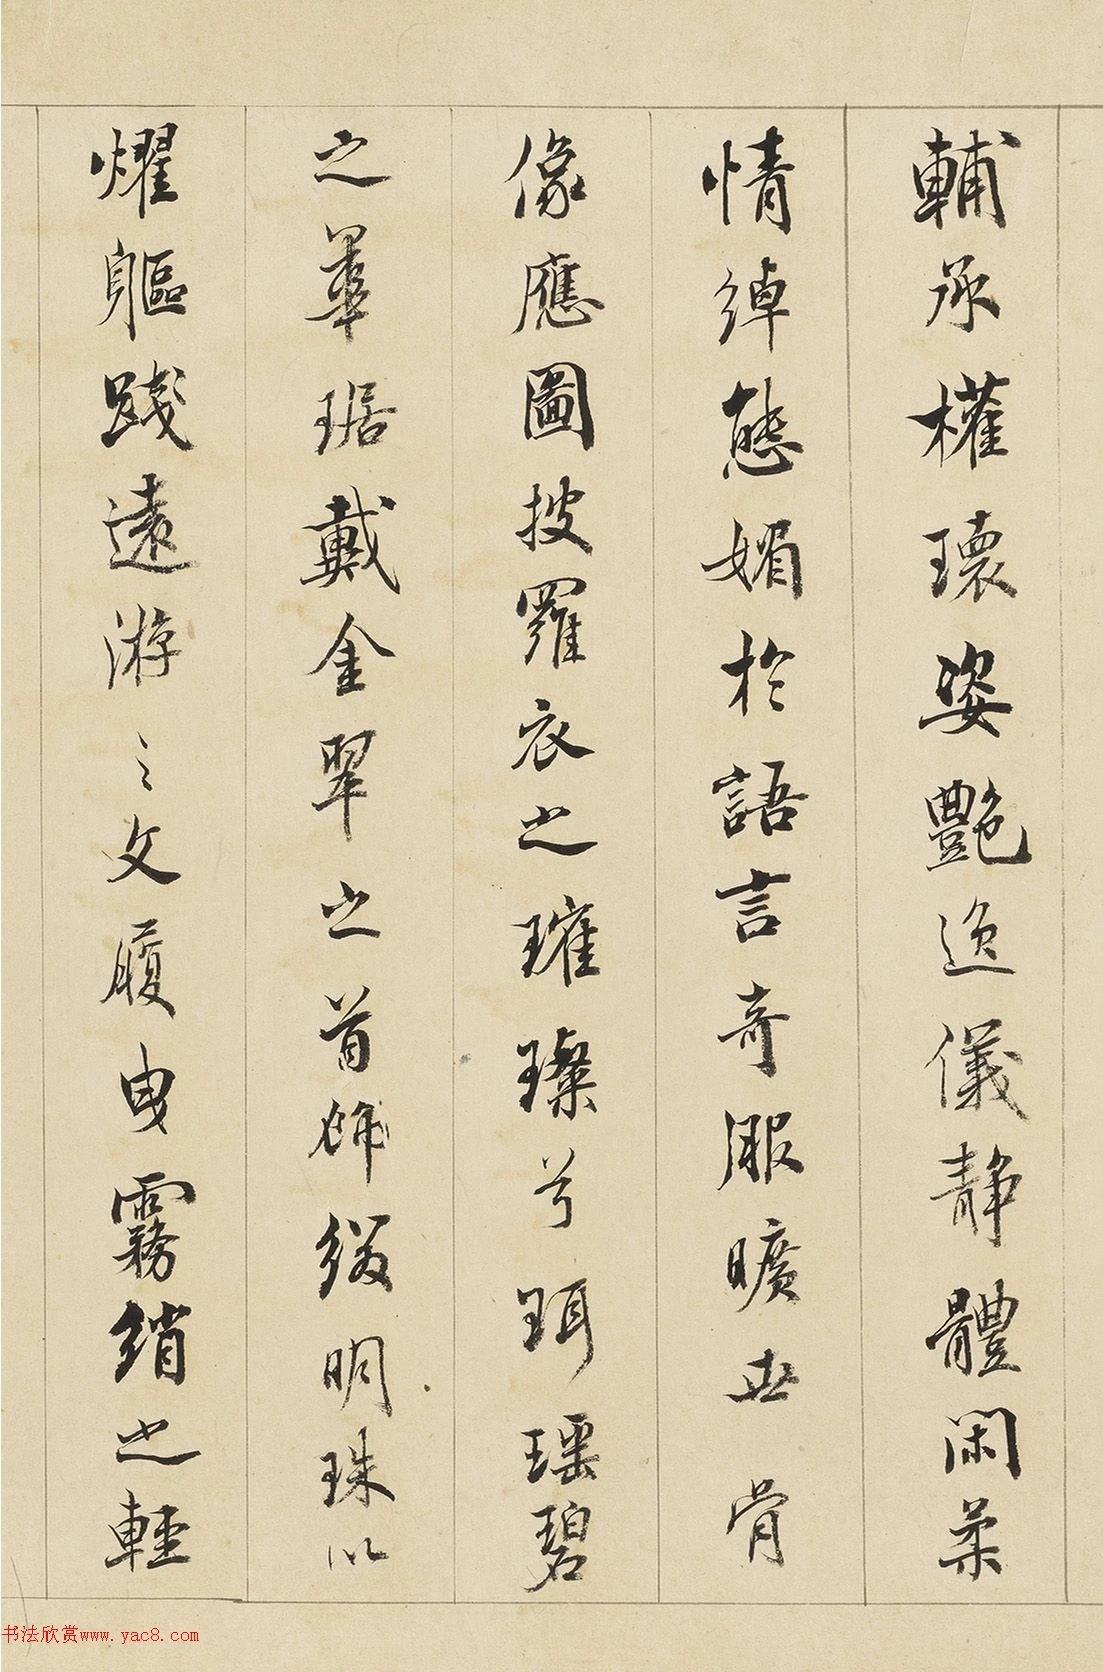 輔承權瓌姿艷逸儀靜體閑柔
情綽態媚於語言奇服曠世骨
像應圖披羅衣之璀璨兮珥瑶碧
之華琚戴金翠之首飾綴明珠以
燿軀踐遠游之文履曳霧綃之輕
书法欣赏www.yac8.com